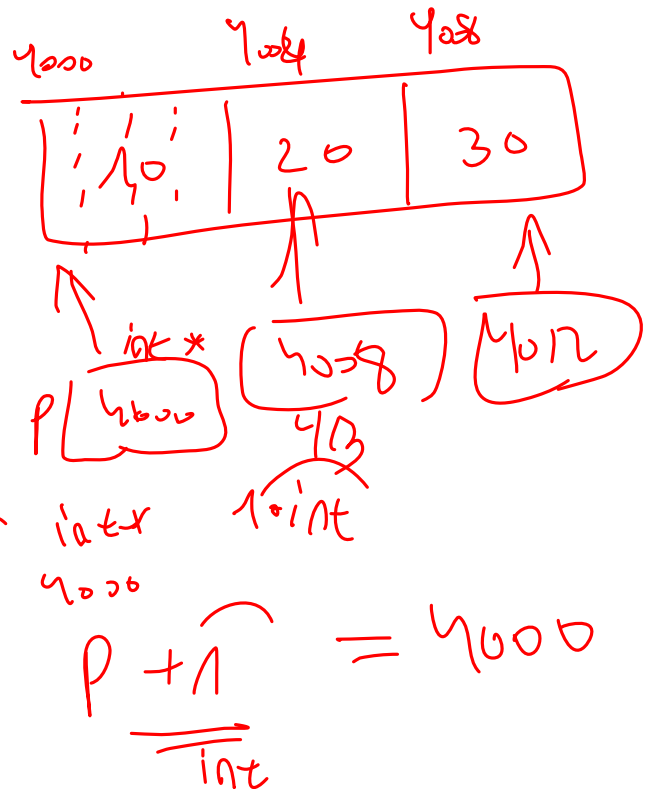 4000 4004 4008
10 20 30
int *
P 4000 4008 4012
4B
1·int
int*
4000
P + 1 = 4000
int